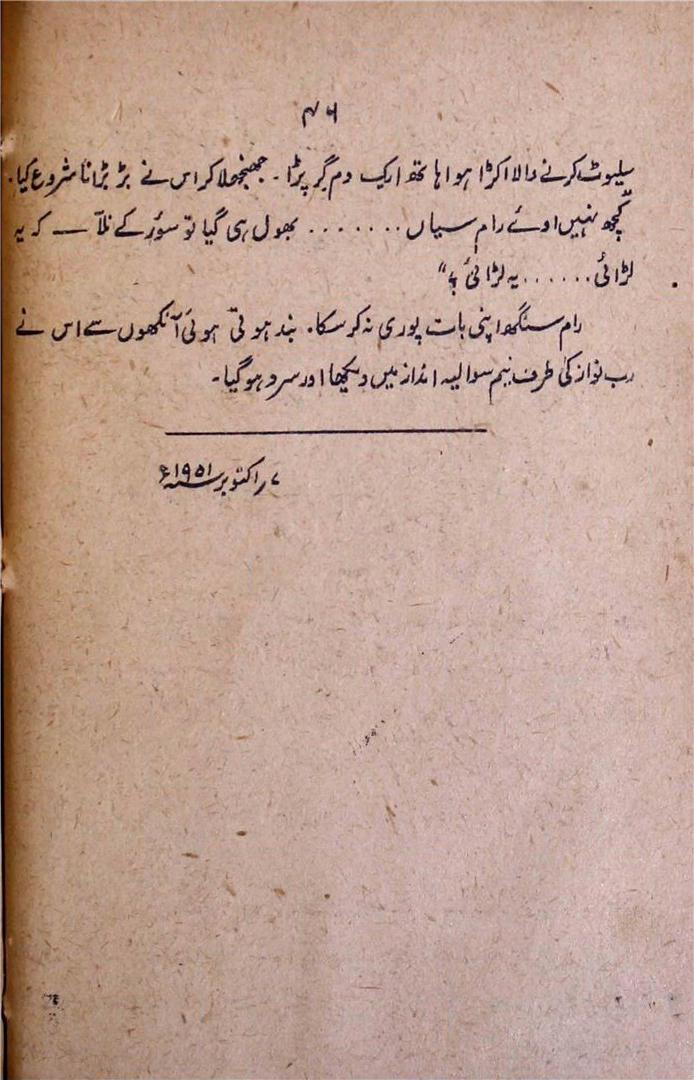 ۴۶
سلیوٹ کرنے والا اکڑا ہوا ہاتھ ایک دم گر پڑا۔ جھنجھلا کر اس نے بڑبڑانا شروع کیا۔
"کچھ نہیں اوئے رام سیاں....... بھول ہی گیا تو سؤر کے نلاّ — کہ یہ
لڑائی...... یہ لڑائی ؟"
رام سنگھ اپنی بات پوری نہ کر سکا۔ بند ہوتی ہوئی آنکھوں سے اس نے
رب نواز کی طرف نیم سوالیہ انداز میں دیکھا اور سرد ہو گیا۔
۷ر اکتوبر سنہ ۱۹۵۱ء